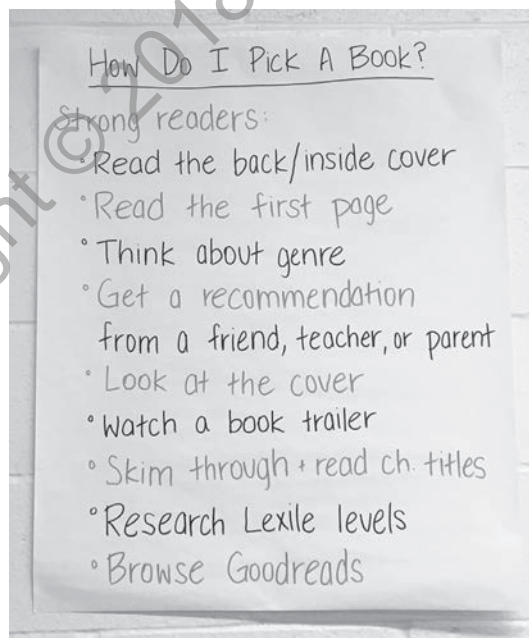 How Do I Pick A Book?
Strong readers:
• Read the back/inside cover
• Read the first page
• Think about genre
• Get a recommendation
from a friend, teacher, or parent
• Look at the cover
• Watch a book trailer
• Skim through + read ch. titles
• Research Lexile levels
• Browse Goodreads
ght © 2018